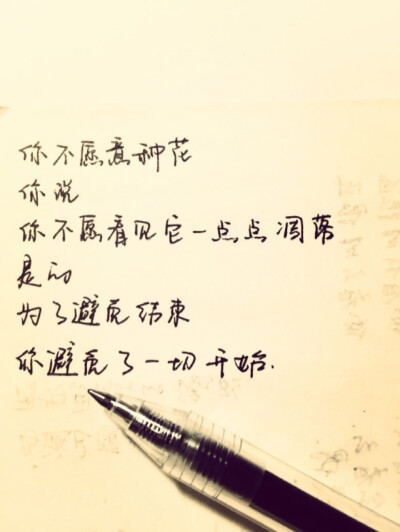 你不愿意种花
你说
你不愿看见它一点点凋落
是的
为了避免结束
你避免了一切开始.